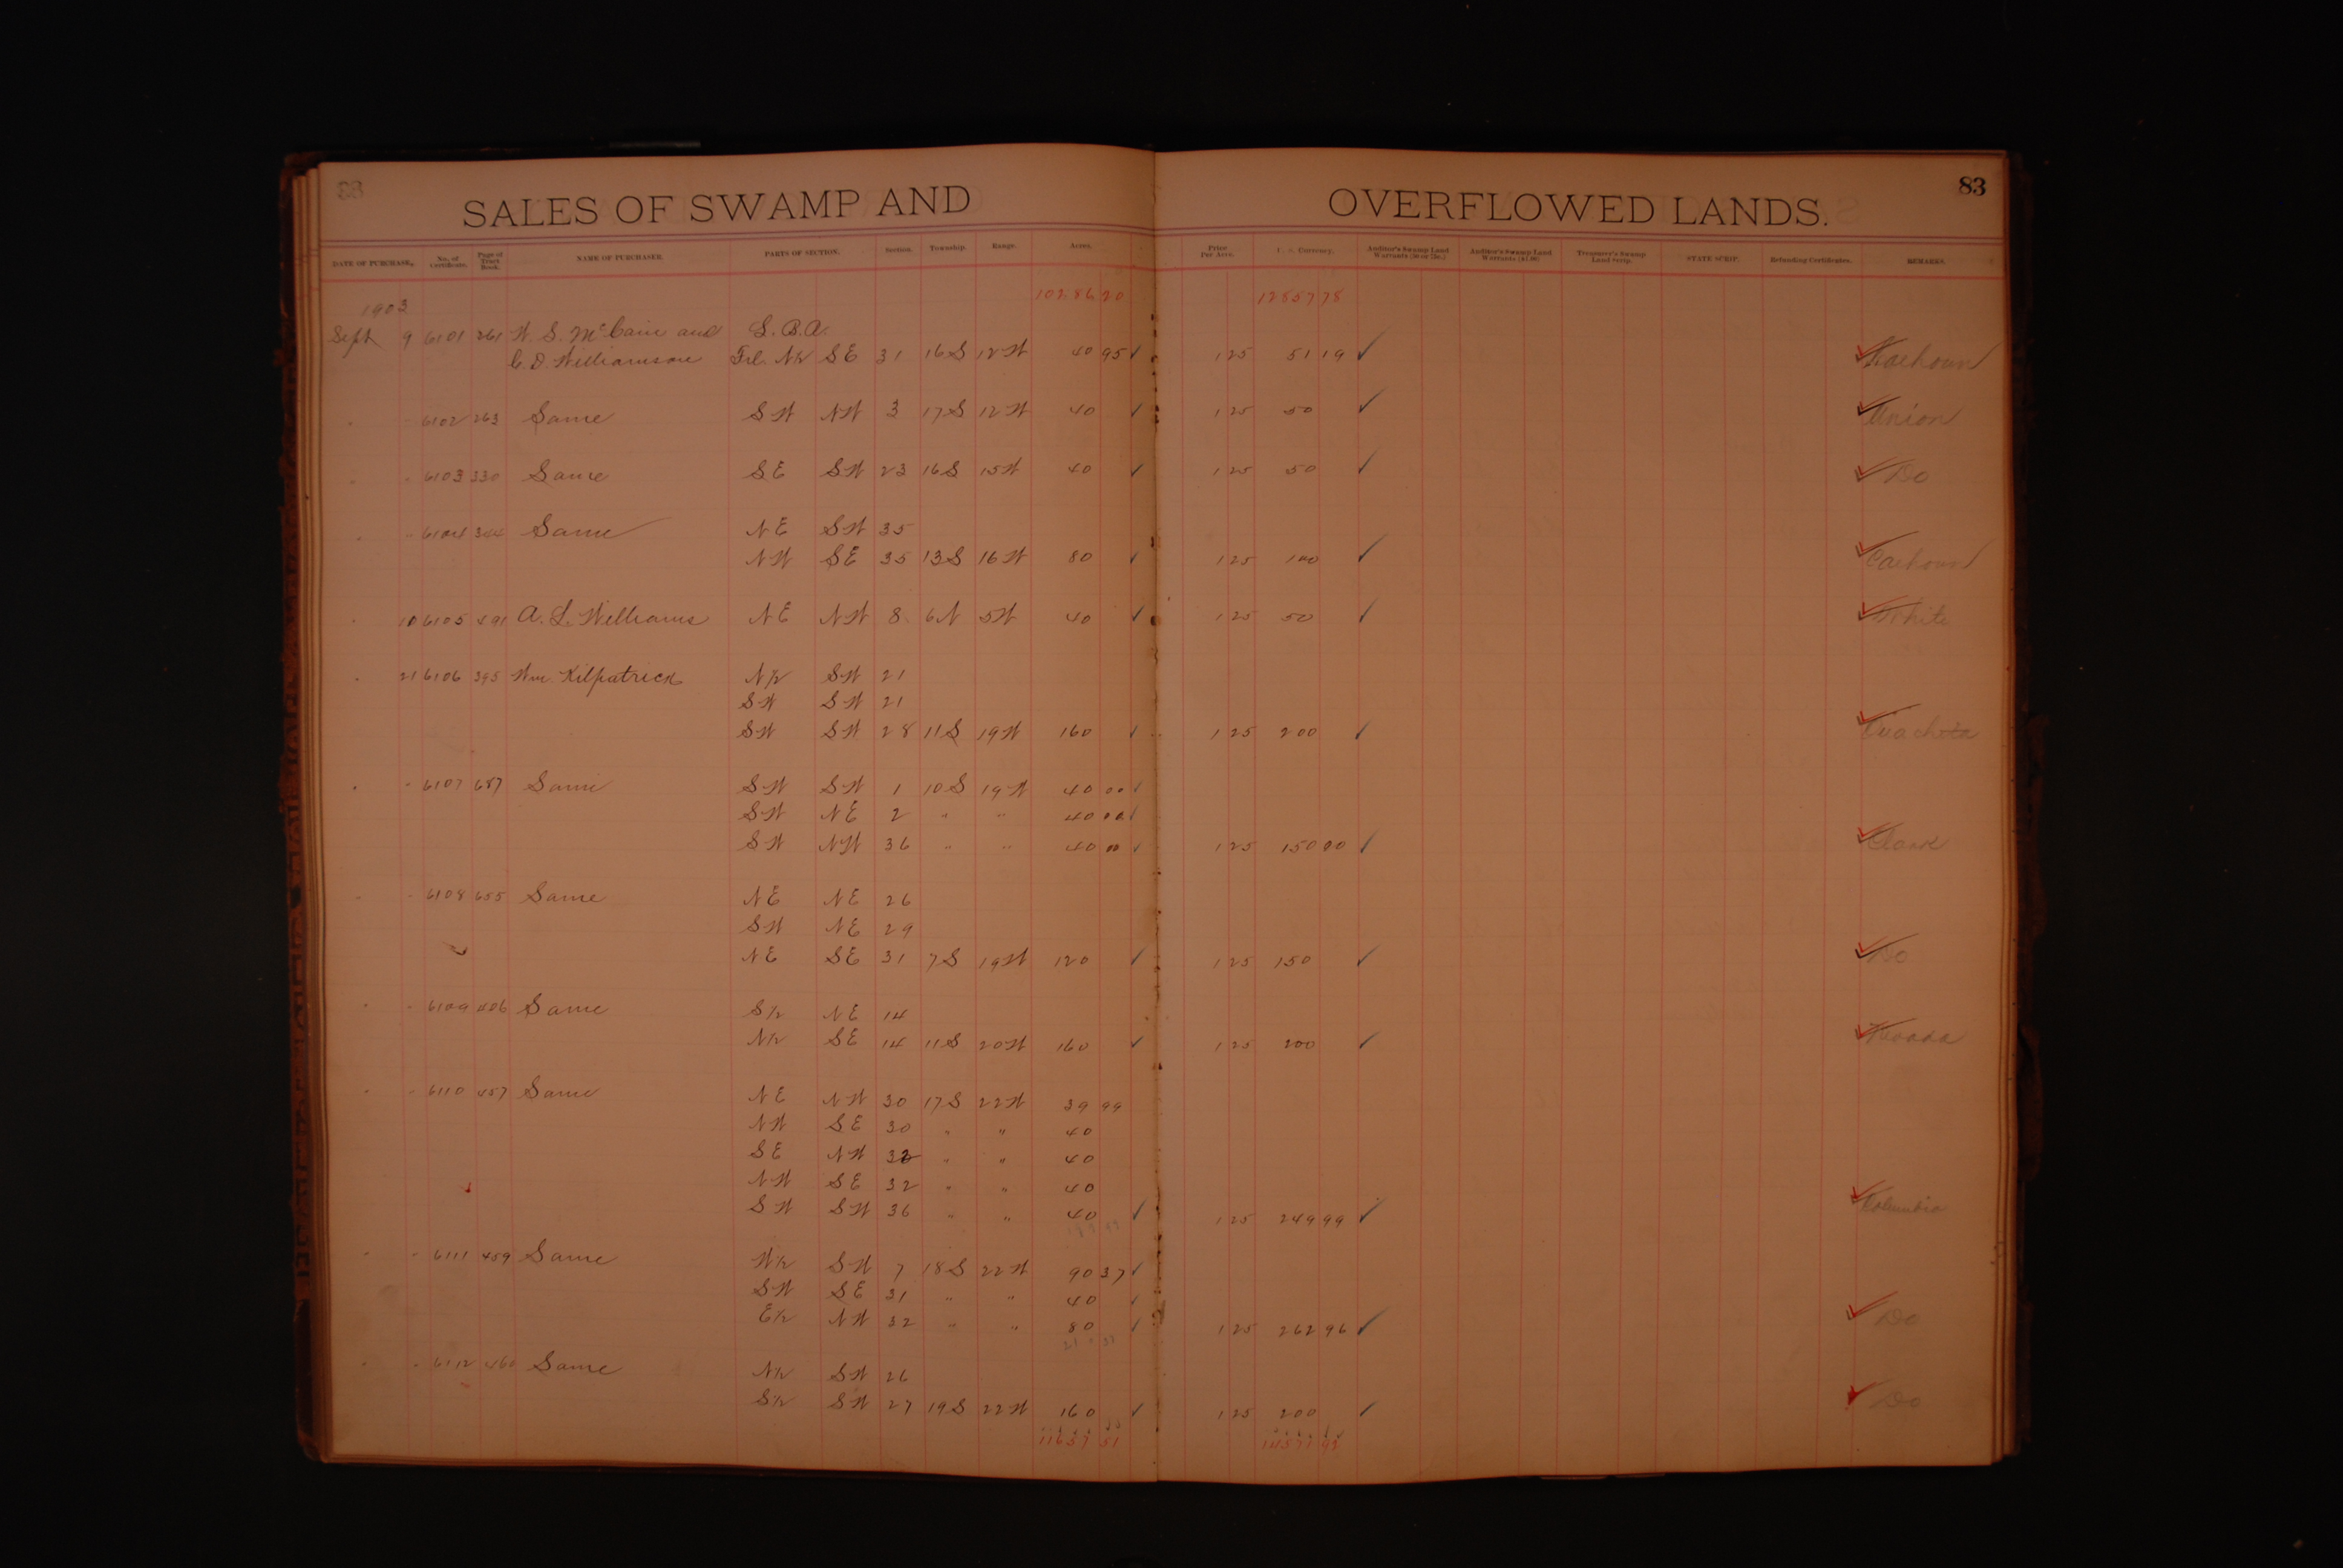 SALES OF SWAMP AND OVERFLOWED LANDS. 83
DATE OF PURCHASE. No. of Certificate. Page of Tract Book. NAME OF PURCHASER. PARTS OF SECTION. Section. Township. Range. Acres. Price Per Acre. U. S. Currency. Auditor's Swamp Land Warrants (50 or 75c.) Auditor's Swamp Land Warrants ($1.00) Treasurer's Swamp Land Scrip. STATE SCRIP. Refunding Certificates. REMARKS.
1903 10286 20 12857 78
Sept 9 6101 261 W. S. McCain and L. B. A.
C. D. Williamson Frl. N½ SE 31 16S 12W 40 95 ✓ 1 25 51 19 ✓ Calhoun
" " 6102 263 Same SW NW 3 17S 12W 40 ✓ 1 25 50 ✓ Union
" " 6103 330 Same SE SW 23 16S 15W 40 ✓ 1 25 50 ✓ Do
" " 6104 344 Same NE SW 35
NW SE 35 13S 16W 80 ✓ 1 25 100 ✓ Calhoun
" 10 6105 491 A. L. Williams NE NW 8 6N 5W 40 ✓ 1 25 50 ✓ White
" 21 6106 395 Wm. Kilpatrick N½ SW 21
SW SW 21
SW SW 28 11S 19W 160 ✓ 1 25 200 ✓ Ouachita
" " 6107 687 Same SW SW 1 10S 19W 40 00 ✓
SW NE 2 " " 40 00 ✓
SW NW 36 " " 40 00 ✓ 1 25 150 00 ✓ Clark
" " 6108 655 Same NE NE 26
SW NE 29
NE SE 31 7S 19W 120 ✓ 1 25 150 ✓ Do
" " 6109 406 Same S½ NE 14
N½ SE 14 11S 20W 160 ✓ 1 25 200 ✓ Nevada
" " 6110 457 Same NE NW 30 17S 22W 39 99
NW SE 30 " " 40
SE NW 32 " " 40
NW SE 32 " " 40
SW SW 36 " " 40 ✓ 1 25 249 99 ✓ Columbia
" " 6111 459 Same W½ SW 7 18S 22W 90 37 ✓
SW SE 31 " " 40 ✓
E½ NW 32 " " 80 ✓ 1 25 262 96 ✓ Do
" " 6112 460 Same N½ SW 26
S½ SW 27 19S 22W 160 ✓ 1 25 200 ✓ Do
11657 51 14571 93